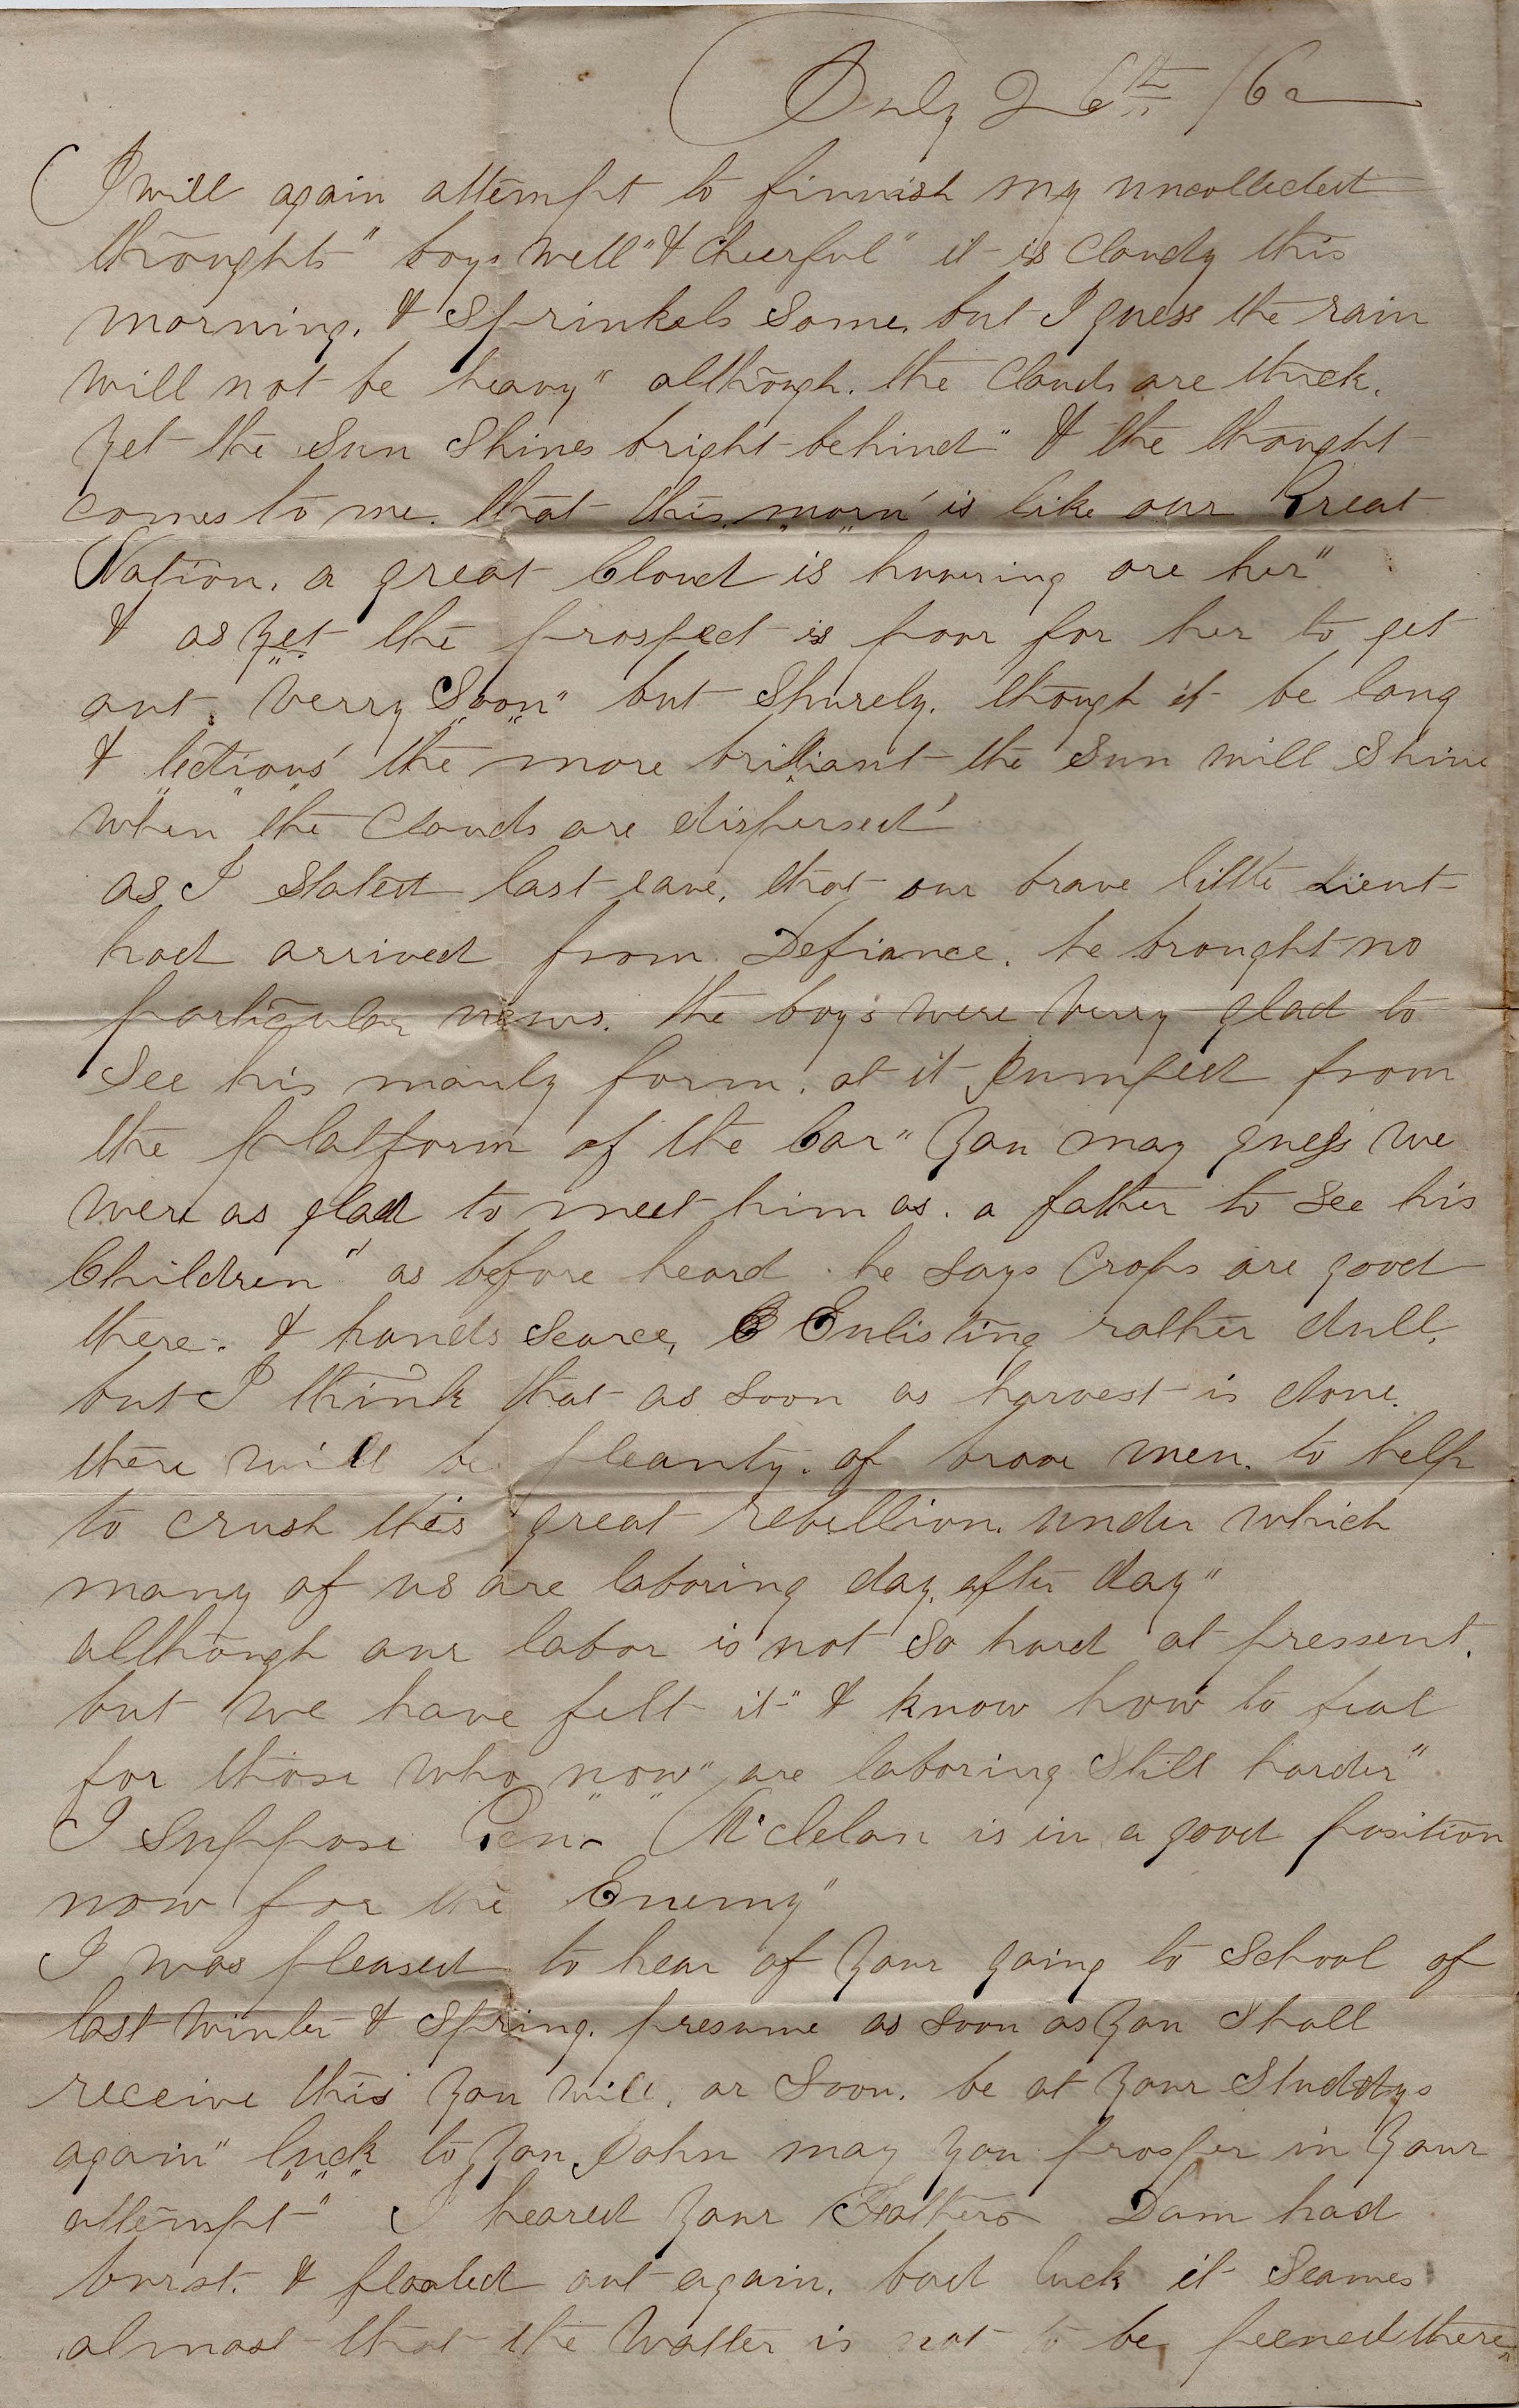 July 26th /62
I will again attempt to finnish my uncollected
thoughts" boys well" & cheerful" it is cloudy this
morning. & Sprinkels Some. but I guess the rain
will not be heavy" although. the Clouds are thick.
yet the Sun Shines bright behind" & the thought
comes to me. that this morn' is like our Great
Nation. a great Cloud is huvering ore her"
& as yet the prospect is poor for her to get
out. verry Soon" but Shurely. though it be long
& the more briliant the Sun will Shine
when the Clouds are dispersed'
as I Stated last eave, that our brave little Lieut
had arrived from Defiance. he brought no
particular news. the boys were verry glad to
See his manly form. at it Jumped from
the platform of the Car" you may guess we
were as glad to meet him as. a father to See his
Children" as before heard. he Says Crops are good
there. & hands Scarce, Enlisting rather dull.
but I think that as Soon as harvest is done.
there will be pleanty. of brave men. to help
to crush this great rebellion. under which
many of us are laboring day. after day"
although our labor is not So hard at pressent.
but we have felt it" & know how to feal
for those who "now" are laboring Still harder"
I Suppose Gen. McClelan is in a good position
now for the Enemy"
I was pleased to hear of your going to School of
last winter & Spring. presume as Soon as you Shall
receive this you will, or Soon. be at your Studdys
again" luck to you John may you prosper in your
attempt" I heared your Fathers Dam had
burst. & floated out again. bad luck it Seames
almost that the Watter is not to be peened there"